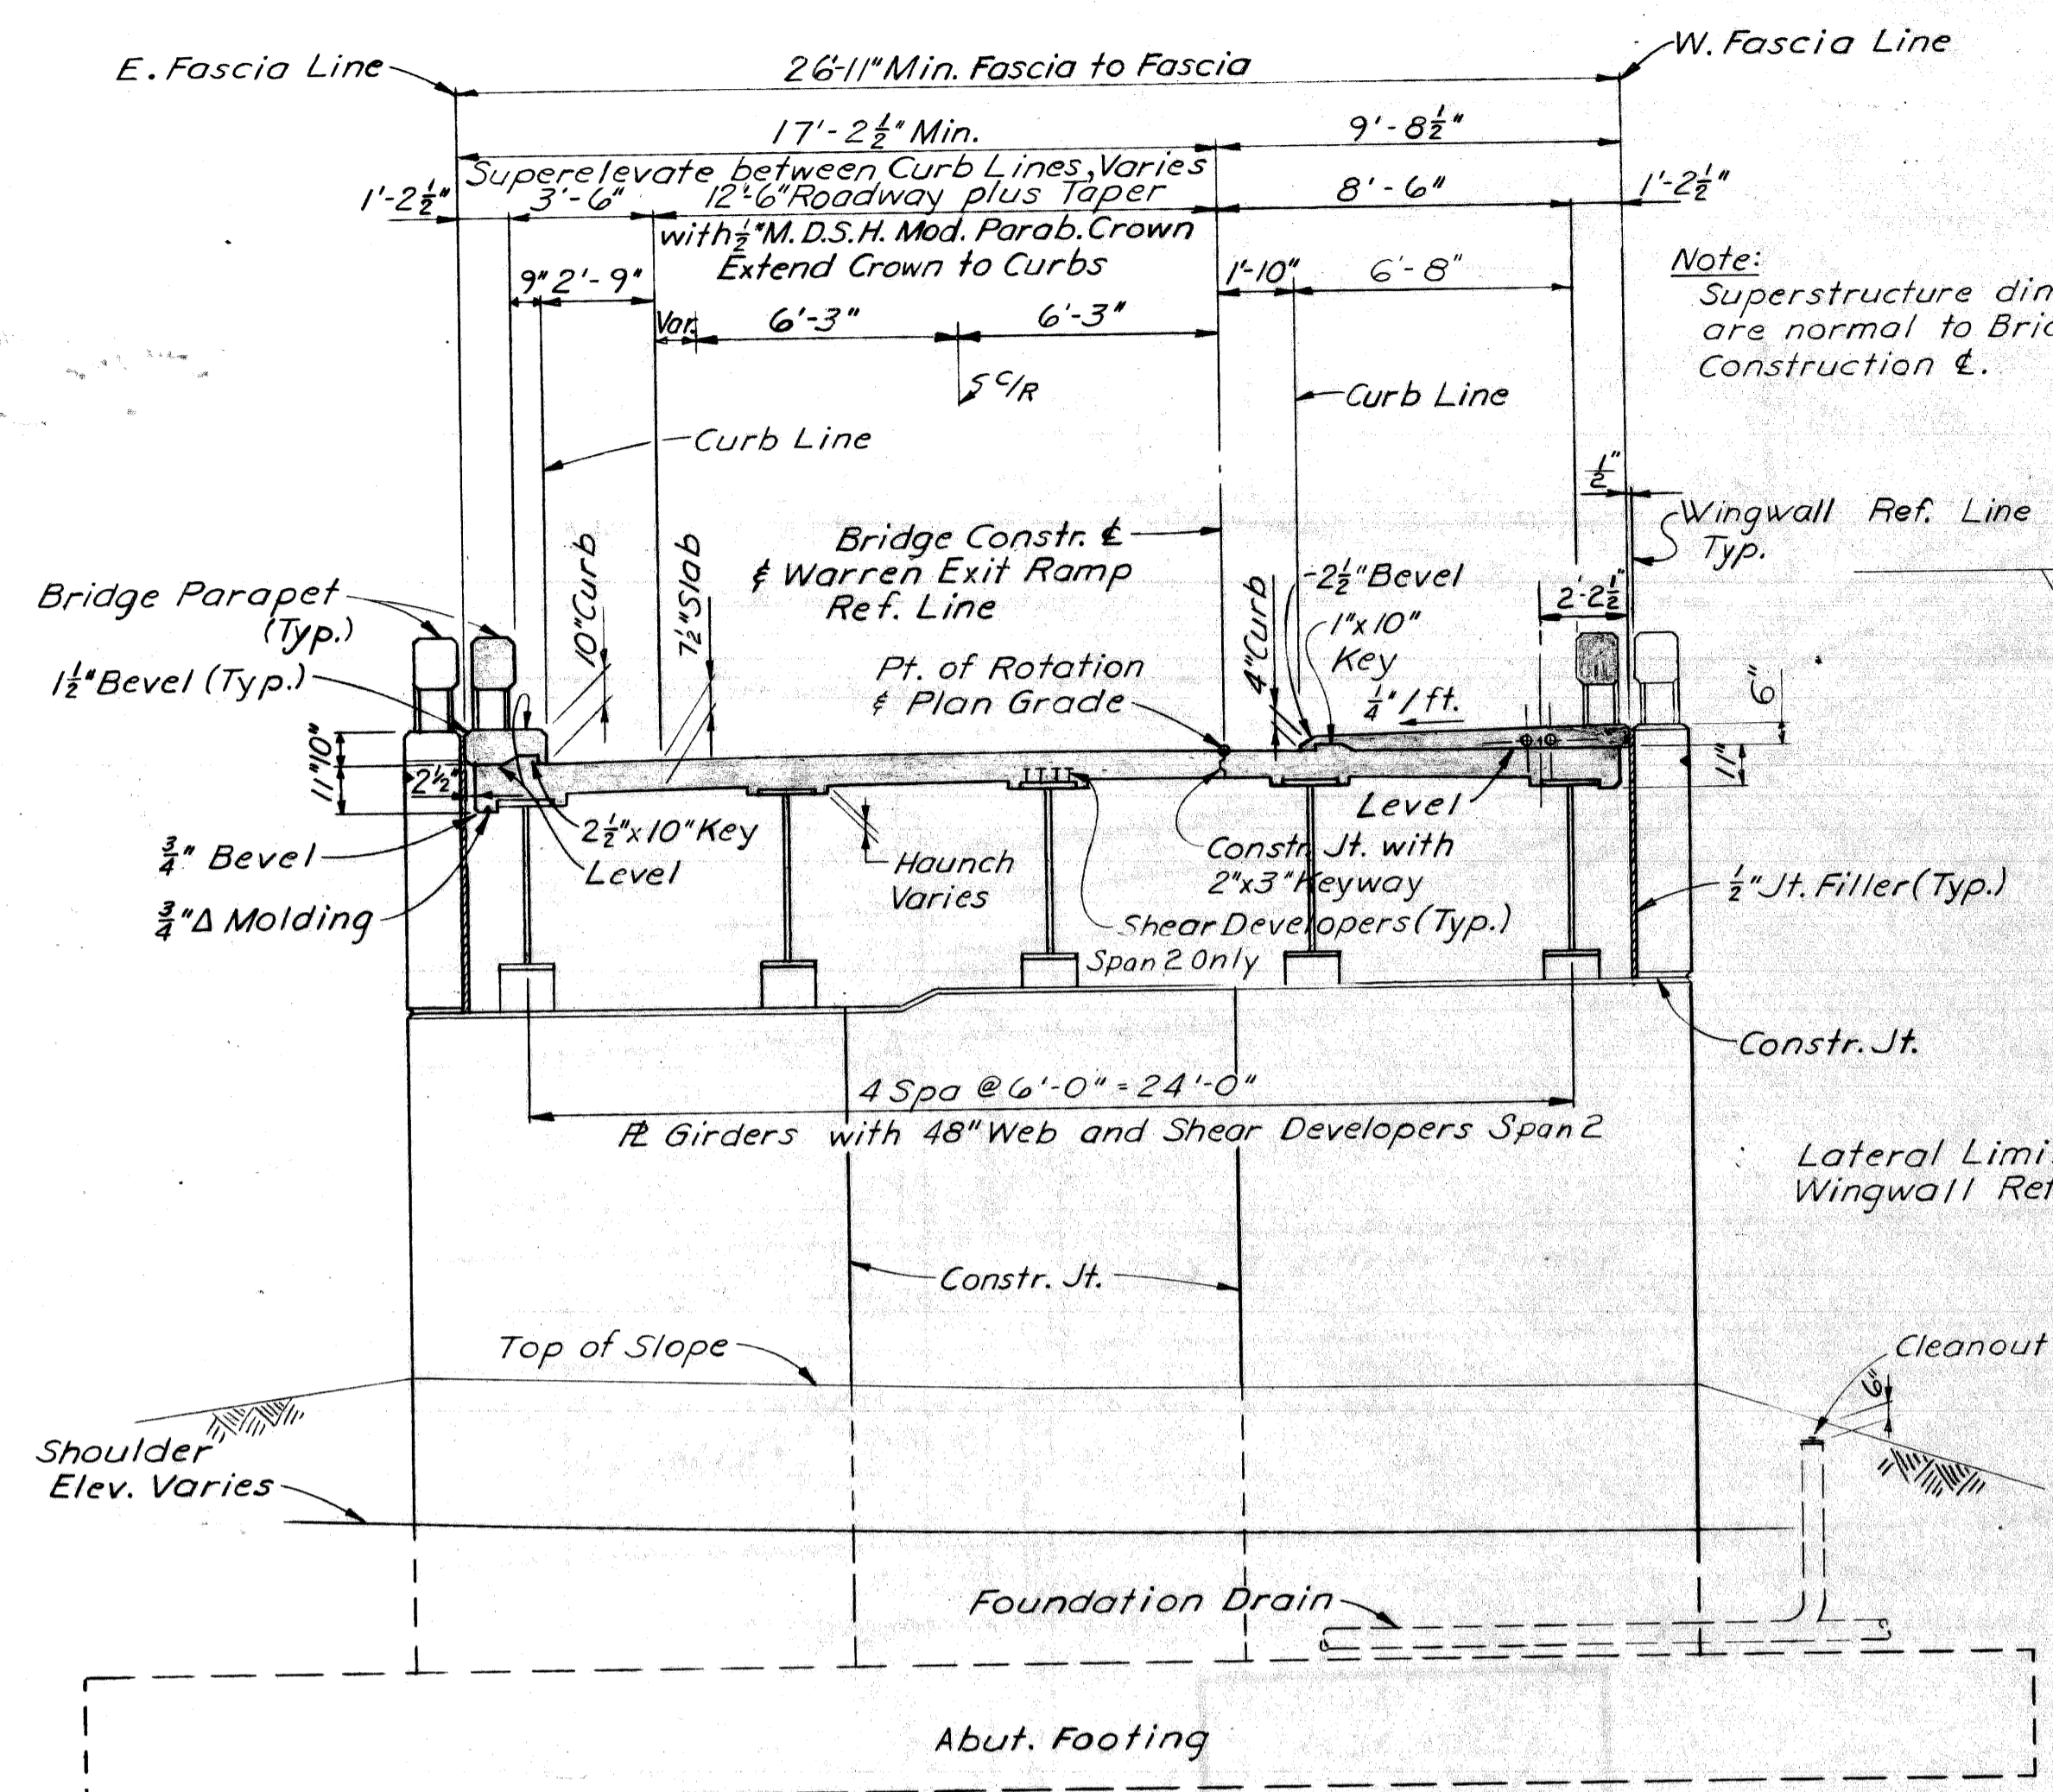 E. Fascia Line
26'-11" Min. Fascia to Fascia
W. Fascia Line
17'-2½" Min.
9'-8½"
Superelevate between Curb Lines, Varies
1'-2½"
3'-6"
12'-6" Roadway plus Taper
8'-6"
1'-2½"
with ½" M.D.S.H. Mod. Parab. Crown
Extend Crown to Curbs
9"
2'-9"
1'-10"
6'-8"
Note:
Superstructure dim
are normal to Brid
Construction ℄.
Var.
6'-3"
6'-3"
S C/R
Curb Line
Curb Line
½"
Wingwall Ref. Line
Typ.
Bridge Constr. ℄
& Warren Exit Ramp
Ref. Line
10" Curb
7½" Slab
4" Curb
2½" Bevel
1"x10"
Key
¼"/ft.
2'-2½"
Bridge Parapet
(Typ.)
1½" Bevel (Typ.)
Pt. of Rotation
& Plan Grade
6"
10"
11"
2½"
11"
Level
¾" Bevel
2½"x10" Key
Level
Haunch
Varies
Constr. Jt. with
2"x3" Keyway
½" Jt. Filler (Typ.)
¾" Δ Molding
Shear Developers (Typ.)
Span 2 Only
Constr. Jt.
4 Spa @ 6'-0" = 24'-0"
℄ Girders with 48" Web and Shear Developers Span 2
Lateral Limi
Wingwall Ref
Constr. Jt.
Top of Slope
Cleanout
6"
Shoulder
Elev. Varies
Foundation Drain
Abut. Footing